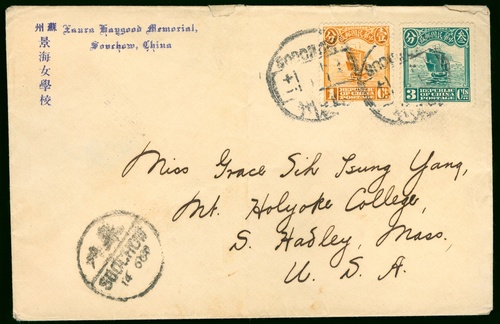 Laura Haygood Memorial,
Soochow, China
蘇州
景海女學校
1 Ct.
REPUBLIC
OF CHINA
POSTAGE
3 Cts
REPUBLIC
OF CHINA
POSTAGE
SOOCHOW
Miss Grace Sih Tsung Yang,
Mt. Holyoke College,
S. Hadley, Mass.
U. S. A.
SOOCHOW
14